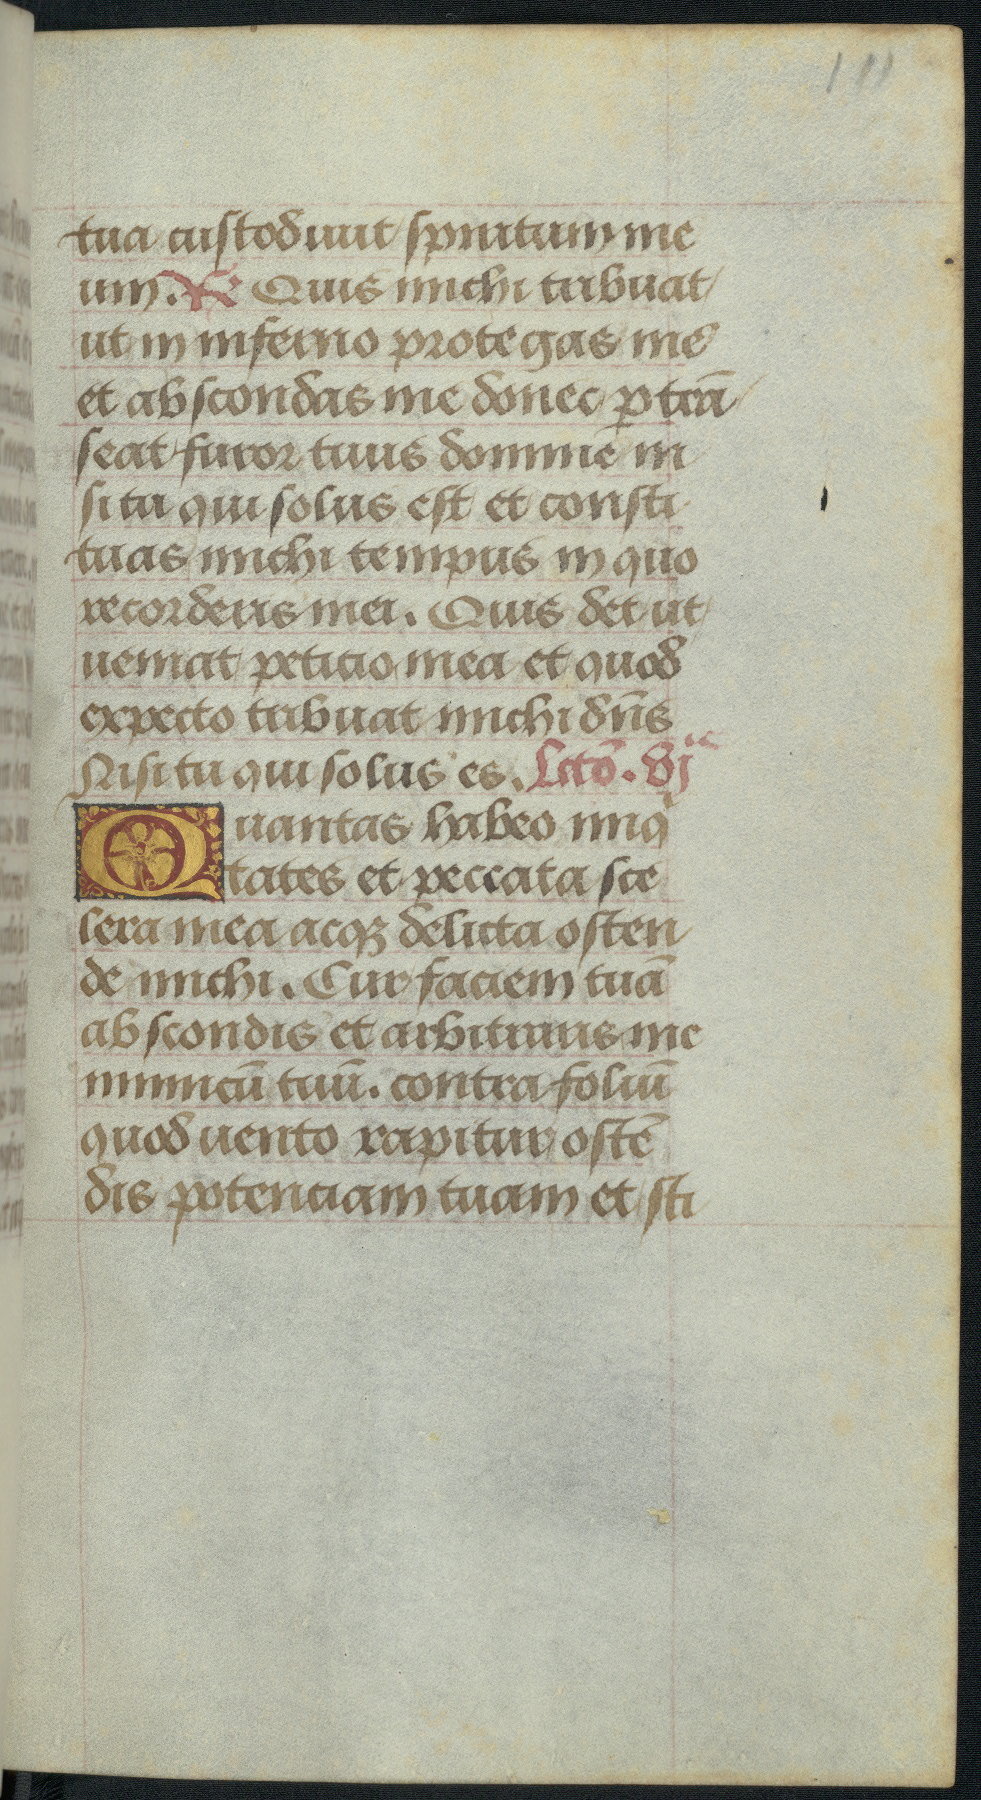 111
tua custodiuit spiritum me
um. R Quis michi tribuat
ut in inferno protegas me
et abscondas me donec ꝑtrā
seat furor tuus domine ni
si tu qui solus est et consti
tuas michi tempus in quo
recorderis mei. Quis det ut
ueniat peticio mea et quod
expecto tribuat michi dn̄s
Nisi tu qui solus es. Lctō. vjᵃ
Quantas habeo iniq
tates et peccata sce
lera mea acqꝫ delicta osten
de michi. Cur faciem tuā
abscondis et arbitraris me
inimicū tuū. contra foliū
quod uento rapitur ostē
dis potenciam tuam et sti